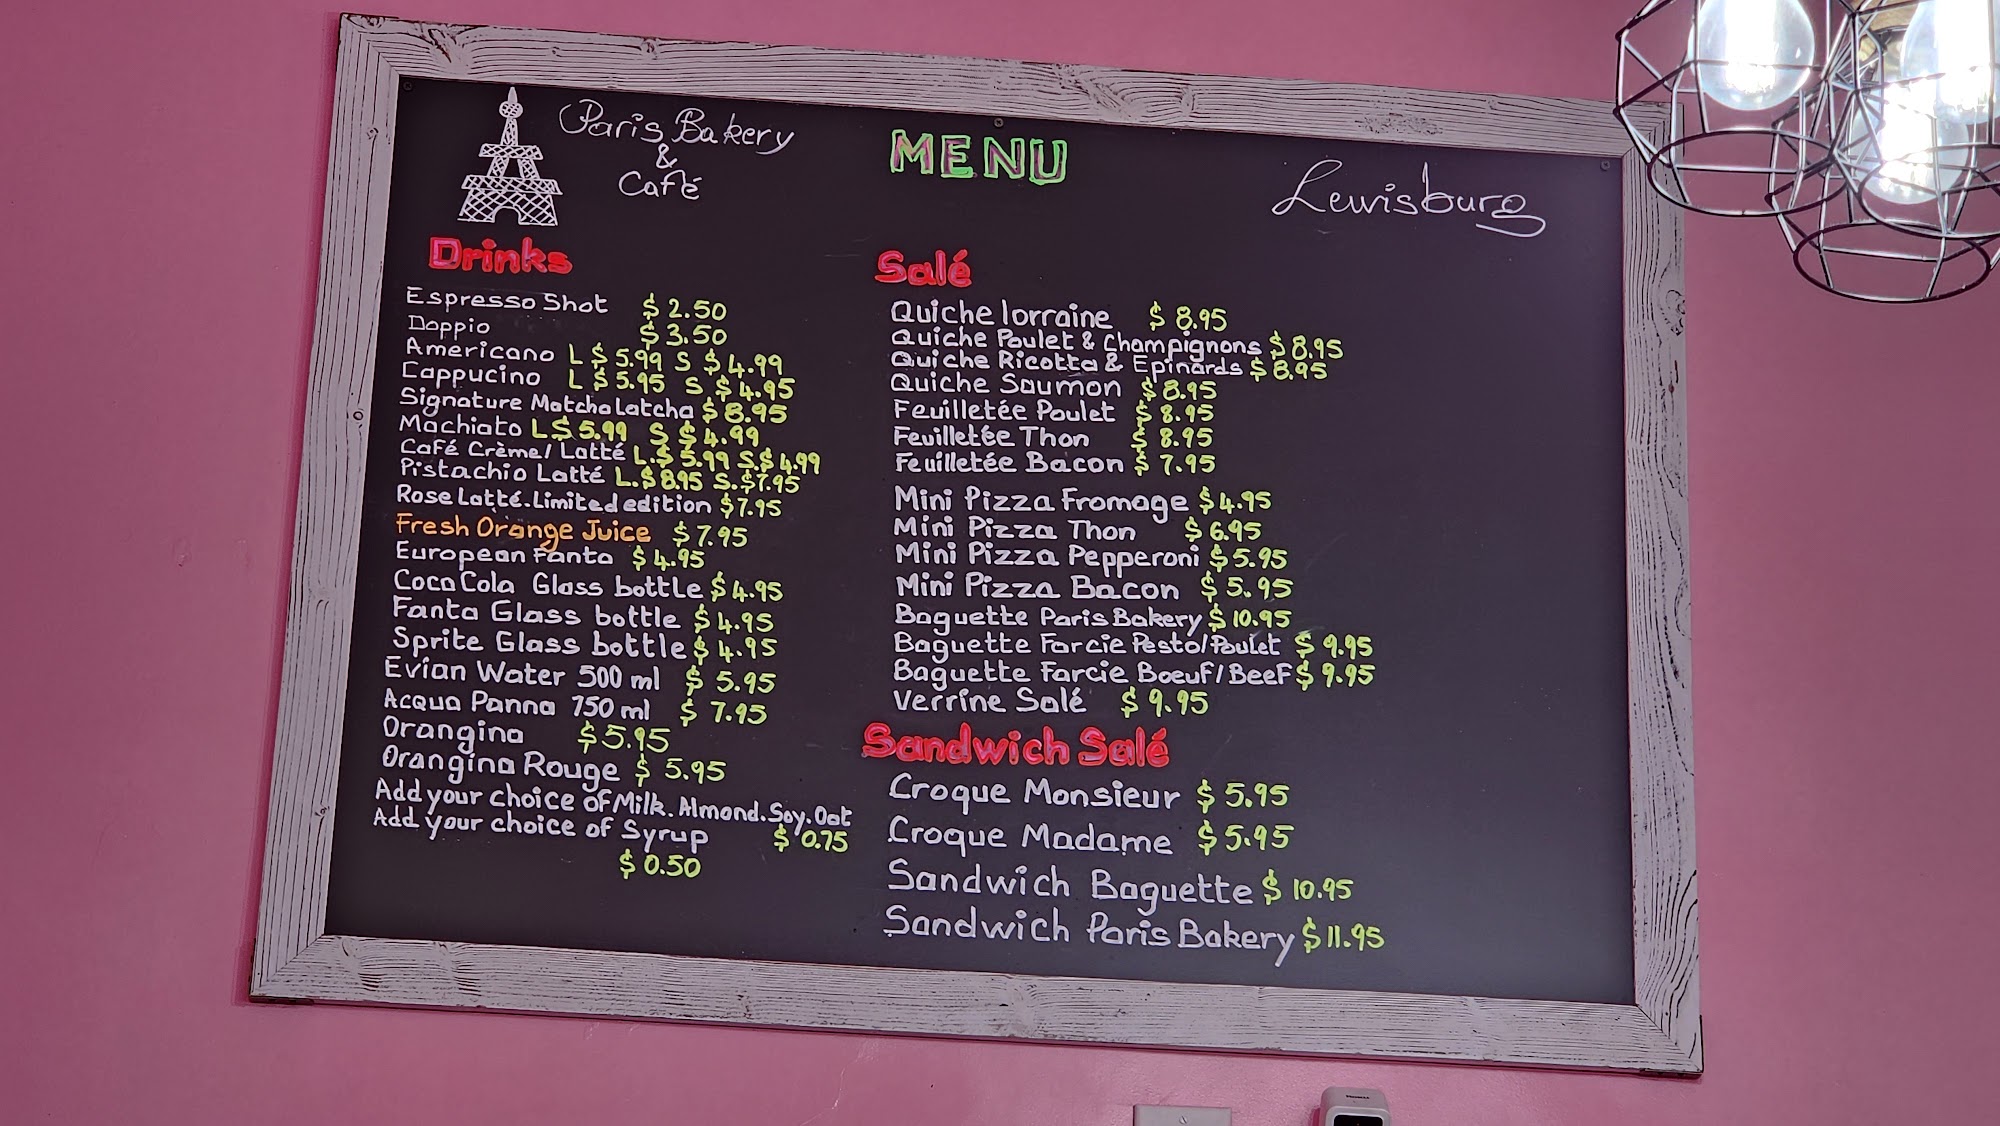 Paris Bakery
&
Café
MENU
Lewisburg
Drinks
Espresso Shot $2.50
Doppio $3.50
Americano L $5.99 S $4.99
Cappucino L $5.95 S $4.95
Signature Matcha Latcha $8.95
Machiato L $5.99 S $4.99
Café Crème/Latté L.$5.99 S.$4.99
Pistachio Latté L.$8.95 S.$7.95
Rose Latté.Limited edition $7.95
Fresh Orange Juice $7.95
European Fanta $4.95
Coca Cola Glass bottle $4.95
Fanta Glass bottle $4.95
Sprite Glass bottle $4.95
Evian Water 500 ml $5.95
Acqua Panna 750 ml $7.95
Orangina $5.95
Orangina Rouge $5.95
Add your choice of Milk.Almond.Soy.Oat
$0.75
Add your choice of Syrup
$0.50
Salé
Quiche lorraine $8.95
Quiche Poulet & Champignons $8.95
Quiche Ricotta & Epinards $8.95
Quiche Saumon $8.95
Feuilletée Poulet $8.95
Feuilletée Thon $8.95
Feuilletée Bacon $7.95
Mini Pizza Fromage $4.95
Mini Pizza Thon $6.95
Mini Pizza Pepperoni $5.95
Mini Pizza Bacon $5.95
Baguette Paris Bakery $10.95
Baguette Farcie Pesto/Poulet $9.95
Baguette Farcie Boeuf/Beef $9.95
Verrine Salé $9.95
Sandwich Salé
Croque Monsieur $5.95
Croque Madame $5.95
Sandwich Baguette $10.95
Sandwich Paris Bakery $11.95